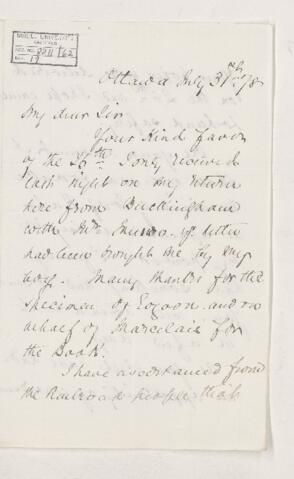 McGILL UNIVERSITY
ACC. NO.
REF. 17
Ottawa July 31st /78
My dear Sir
Your Kind favor
of the 26th I only received
last night on my return
here from Buckingham
with Mr Munro. yr letter
had been brought me by my
boy. Many thanks for the
specimen of Eozoon and on
behalf of for
the Book.
I have ascertained from
the Railroad people that